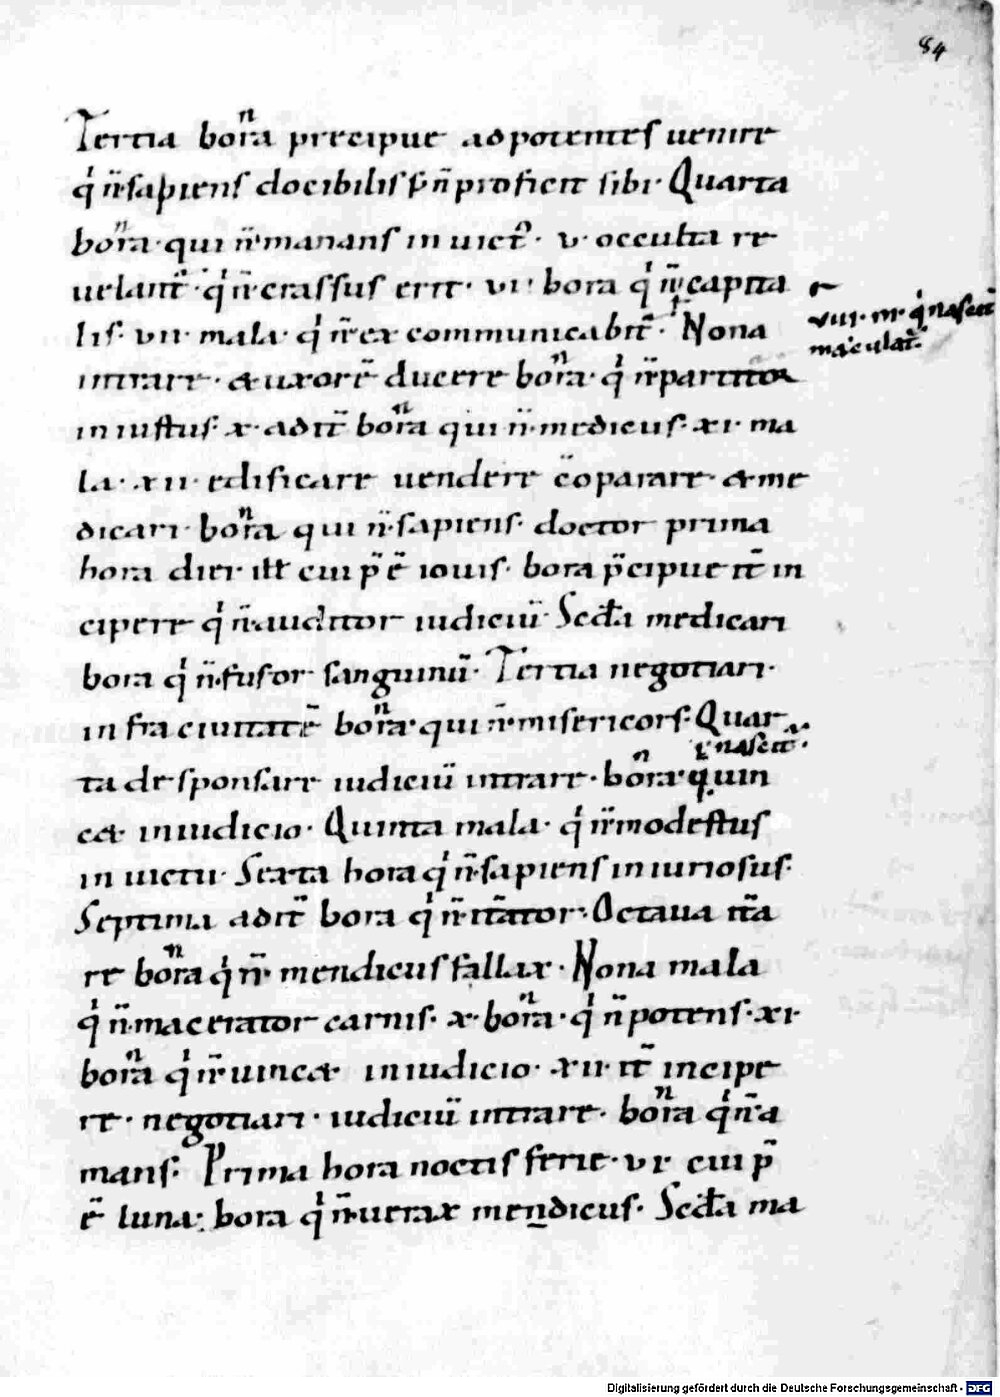 84
Tertia bora precipue ad potentes uenire
qͥ n̄· sapiens docibilis s; n̄ proficit sibi· Quarta
bora· qui n̄· manans in uict̄· v· occulta re
uelant̄· qͥ n̄· crassus erit· vi· bora qͥ n̄· capita
lis· vii· mala· qͥ n̄· excommunicabit̄· Nona
viii· m· qͥ nascit̄
maculat̄·
intrare· & uxorē ducere bora· qͥ n̄·
iniustus· x· adit̄ bora qui n̄· medicus· xi· ma
la· xii· edificare uendere c̄oparare· & me
dicari· bora qui n̄· sapiens· doctor prima
hora diei· ill̄ cui p̄ ē iouis· bora p̄cipue it̄ in
cipere qͥ n̄· auditor iudiciū Scd̄a medicari
bora qͥ n̄· fusor sanguinū· Tertia negotiari·
infra ciuitatē bora· qui n̄· misericors· Quar
qͥ nascit̄·
ta desponsare iudiciū intrare· bora· quin
c& in iudicio· Quinta mala· qͥ n̄· modestus
in uictu· Sexta hora qͥ n̄· sapiens iniuriosus·
Septima adit̄ bora qͥ n̄· it̄ator· Octaua it̄a
re bora qͥ n̄· mendicus fallax· Nona mala
qͥ n̄· macerator carnis· x· bora· qͥ n̄ potens· xi·
bora qͥ n̄· uinc& in iudicio· xii· it̄ incipe
re· negotiari· iudiciū intrare· bora qͥ n̄ a
mans· Prima hora noctis ferie· vi· cui p̄
ē luna· bora qͥ n̄· uerax mendicus· Scd̄a ma
Digitalisierung gefördert durch die Deutsche Forschungsgemeinschaft - DFG